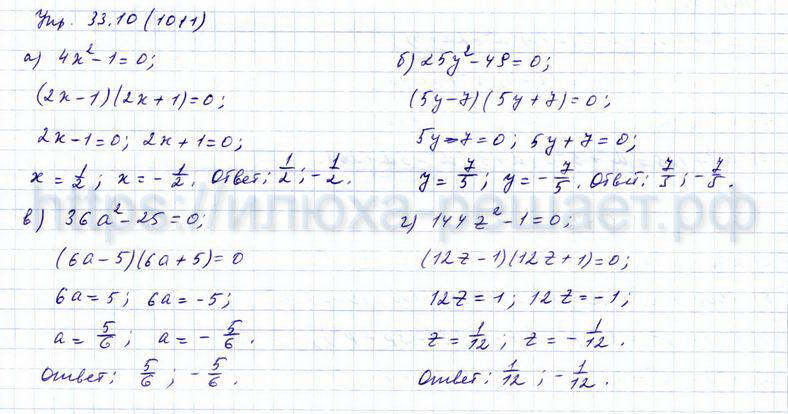 Упр. 33.10 (1011)
а) 4x² - 1 = 0;
(2x - 1)(2x + 1) = 0;
2x - 1 = 0; 2x + 1 = 0;
x = 1/2; x = - 1/2. Ответ: 1/2; - 1/2.
б) 25y² - 49 = 0;
(5y - 7)(5y + 7) = 0;
5y - 7 = 0; 5y + 7 = 0;
y = 7/5; y = - 7/5. Ответ: 7/5; - 7/5.
в) 36a² - 25 = 0;
(6a - 5)(6a + 5) = 0
6a = 5; 6a = -5;
a = 5/6; a = - 5/6.
Ответ: 5/6; - 5/6.
г) 144z² - 1 = 0;
(12z - 1)(12z + 1) = 0;
12z = 1; 12z = -1;
z = 1/12; z = - 1/12.
Ответ: 1/12; - 1/12.
https://илюха-решает.рф